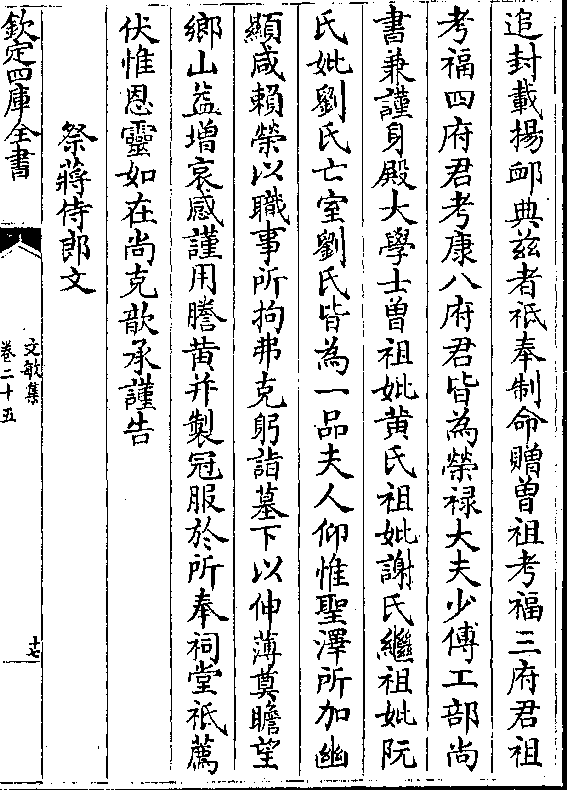 追封載揚䘏典兹者祇奉制命贈曽祖考福三府君祖
考福四府君考康八府君皆為榮禄大夫少傅工部尚
書兼謹身殿大學士曽祖妣黄氏祖妣謝氏繼祖妣阮
氏妣劉氏亡室劉氏皆為一品夫人仰惟聖澤所加幽
顯咸頼榮以職事所拘弗克躬詣墓下以伸薄奠瞻望
鄉山益增哀感謹用謄黄并製冠服於所奉祠堂祇薦
伏惟恩靈如在尚克歆承謹告
祭蔣侍郎文
欽定四庫全書
文敏集
卷二十五
十七